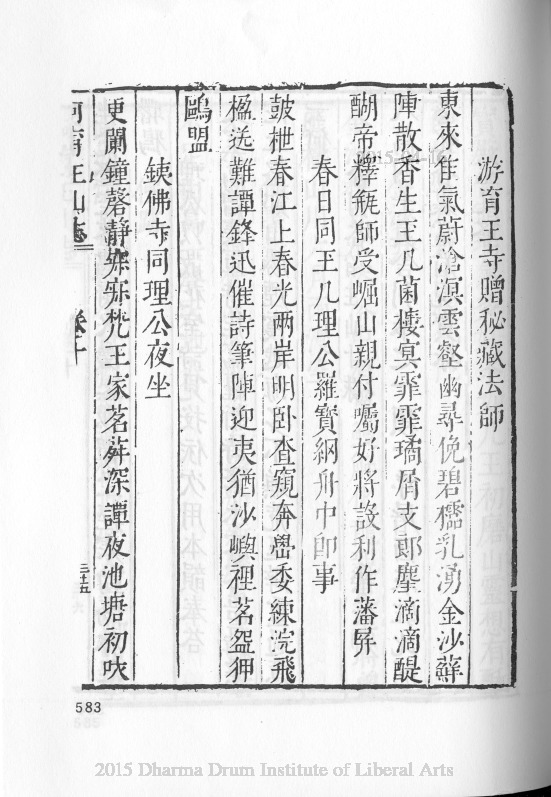 游育王寺贈秘藏法師
東來佳氣蔚滄溟雲壑幽尋俛碧櫺乳湧金沙蘚
陣散香生王几菌樓冥霏霏璚屑支郎麈滴滴醍
醐帝釋缾師受崛山親付囑好將設利作藩屏
春日同王几理公羅寶網舟中即事
鼓枻春江上春光兩岸明卧查窺奔嶨委練浣飛
楹送難譚鋒迅催詩筆陣迎夷猶沙嶼裡茗盌狎
鷗盟
鐵佛寺同理公夜坐
更闌鐘磬靜寥寥梵王家茗荈深譚夜池塘初吠
阿育王山志 卷十
三十五
583
2015 Dharma Drum Institute of Liberal Arts